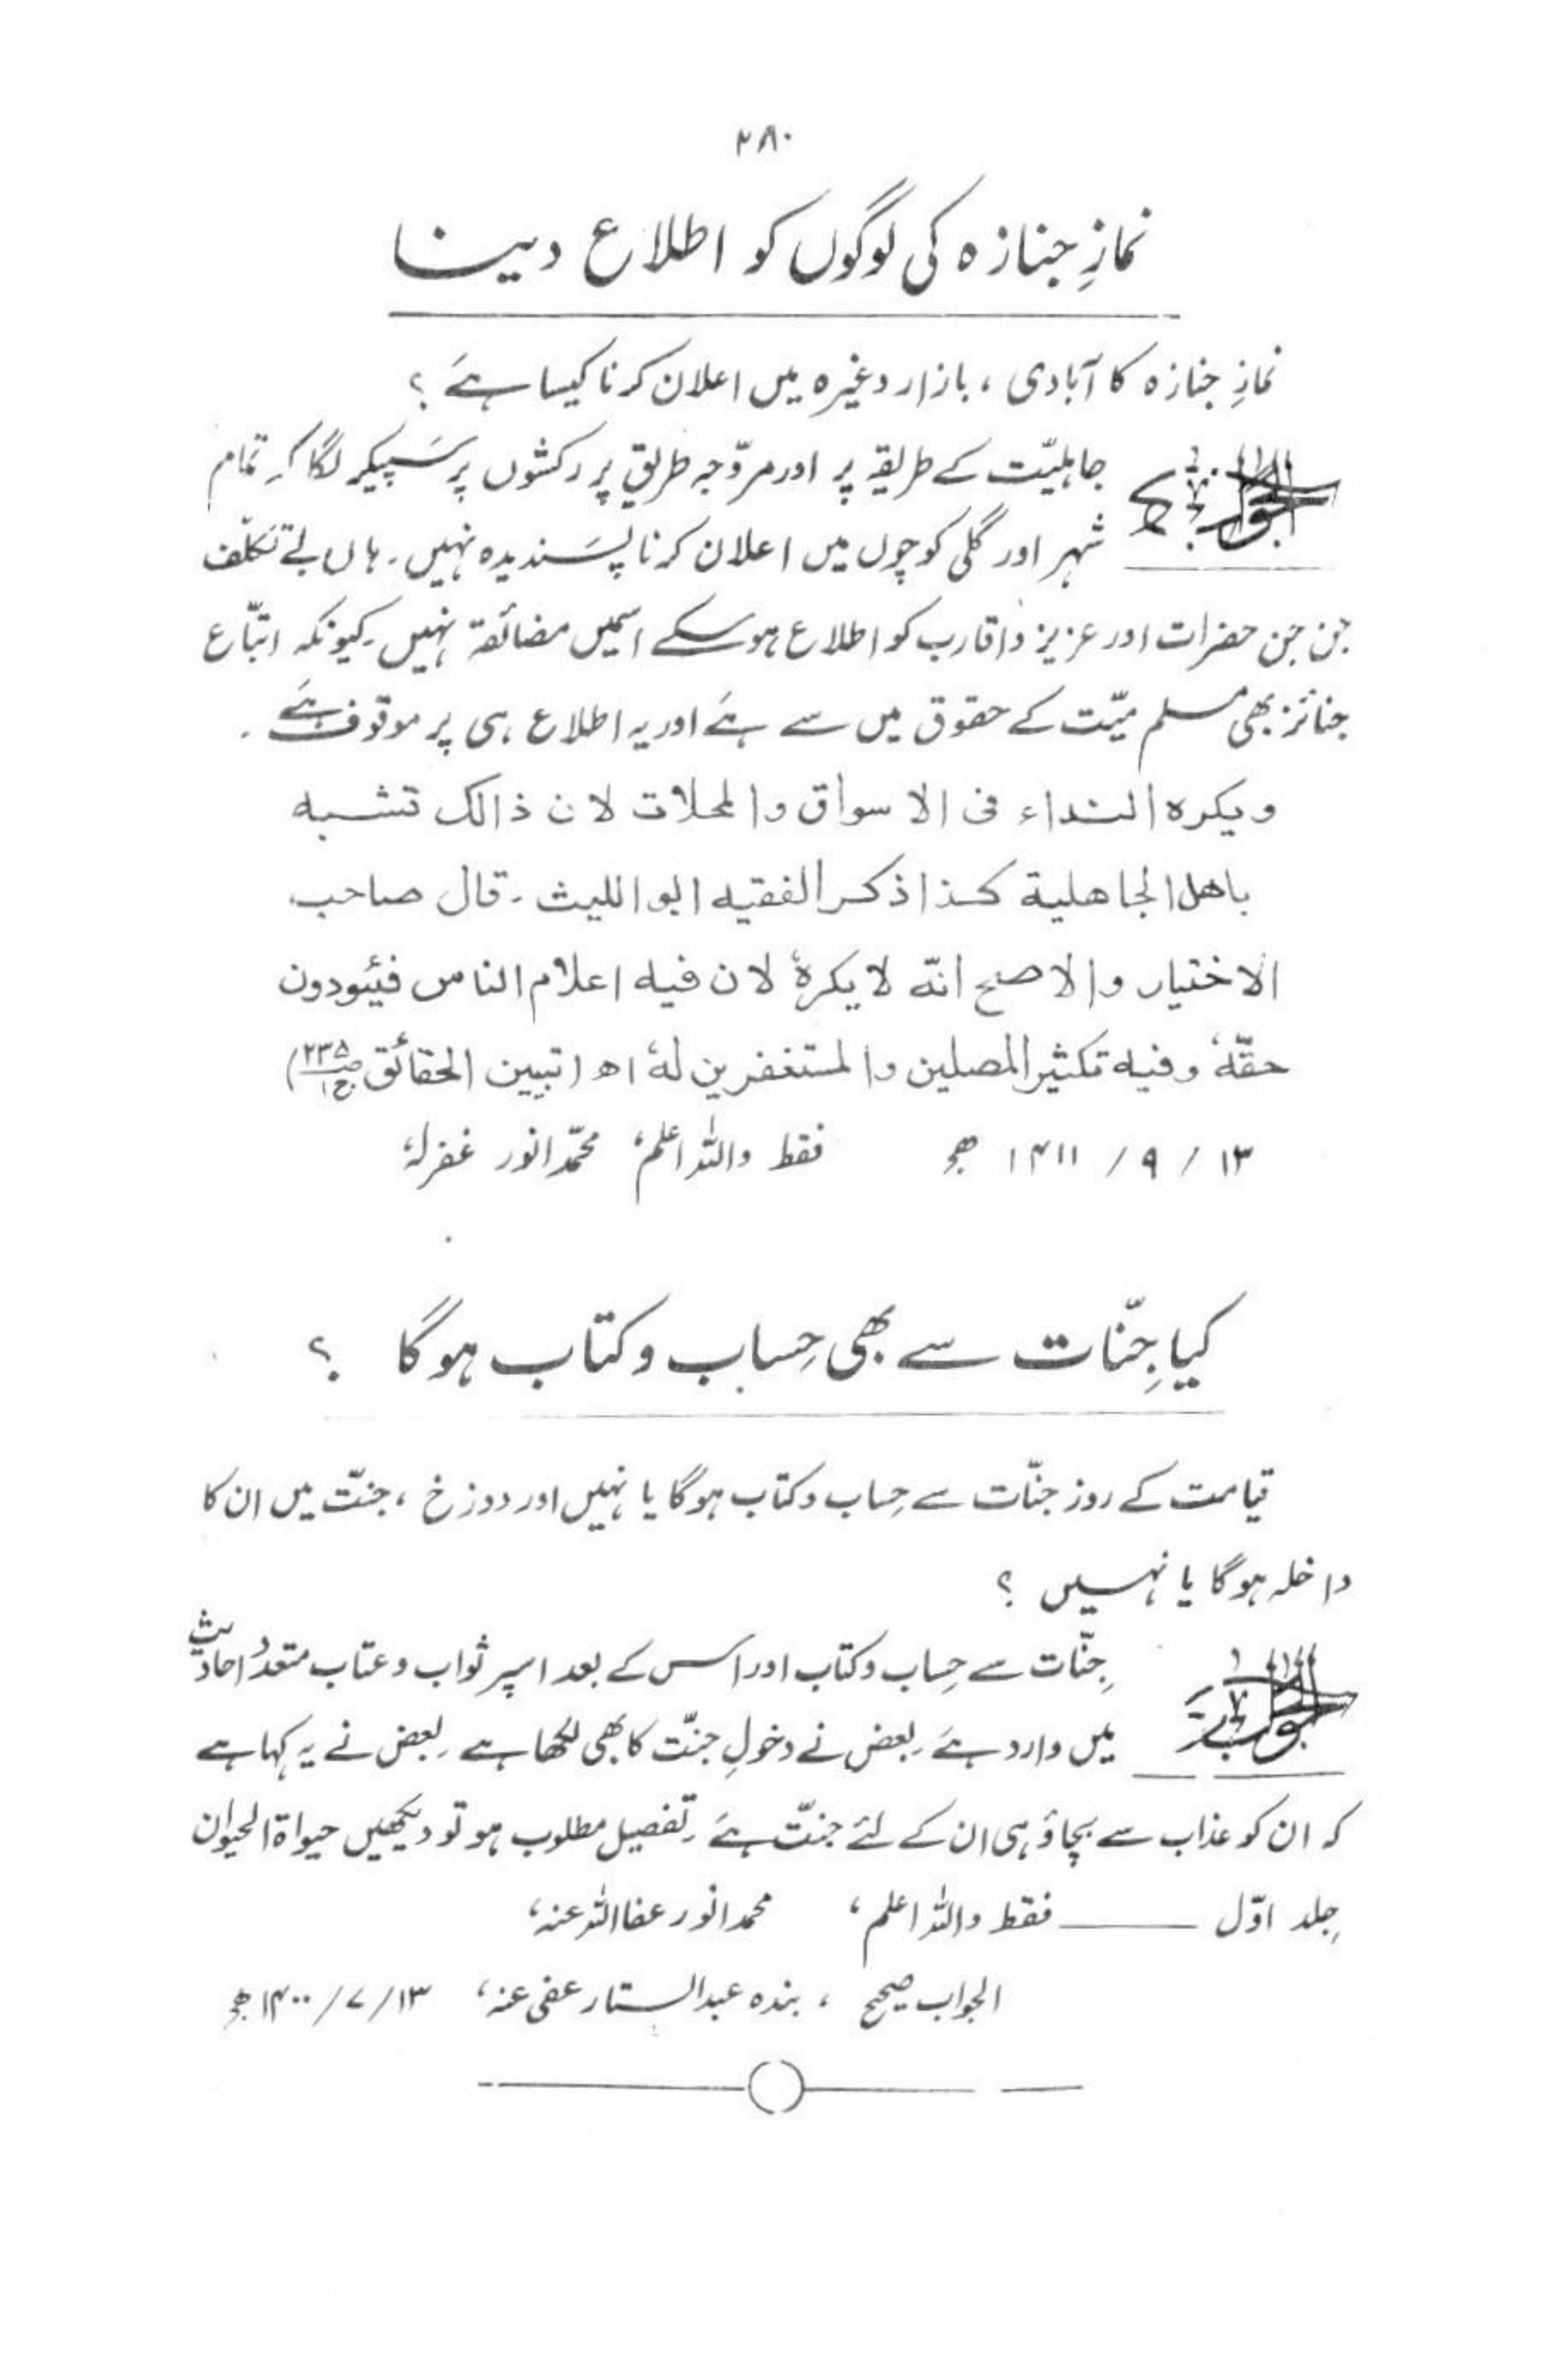 ۲۸۰
نمازِ جنازہ کی لوگوں کو اطلاع دینا
نمازِ جنازہ کا آبادی ، بازار وغیرہ میں اعلان کرنا کیسا ہے ؟
الجواب جاہلیّت کے طریقہ پر اور مروّجہ طریق پر رکشوں پر سَپیکر لگا کر تمام
شہر اور گلی کوچوں میں اعلان کرنا پسَندیدہ نہیں۔ ہاں بے تکلّف
جن جن حضرات اور عزیز واقارب کو اطلاع ہوسکے اسمیں مضائقہ نہیں۔ کیونکہ اتّباع
جنائز بھی مسلم میّت کے حقوق میں سے ہے اور یہ اطلاع ہی پر موقوف ہے ۔
ویکرہ النداء فی الاسواق والمحلات لان ذالک تشبہ
باھل الجاھلیة کذا ذکر الفقیہ ابو اللیث ۔ قال صاحب
الاختیار والاصح انّہ لا یکرہٗ لان فیہ اعلام الناس فیئودون
حقّہٗ وفیہ تکثیر المصلین والمستغفرین لہٗ اھ (تبیین الحقائق ص۲۳۵ ج۱)
۱۳ / ۹ / ۱۴۱۱ ھ فقط واللہ اعلم، محمّد انور غفرلہٗ
کیا جِنّات سے بھی حِساب و کتاب ہوگا ؟
قیامت کے روز جنّات سے حِساب و کتاب ہوگا یا نہیں اور دوزخ ، جنّت میں ان کا
داخلہ ہوگا یا نہیں ؟
الجواب جِنّات سے حِساب و کتاب اور اس کے بعد اسپر ثواب و عتاب متعدد احادیث
میں وارد ہے ۔ بعض نے دخولِ جنّت کا بھی لکھا ہے ۔ بعض نے یہ کہا ہے
کہ ان کو عذاب سے بچاؤ ہی ان کے لئے جنّت ہے ۔ تفصیل مطلوب ہو تو دیکھیں حیواۃ الحیوان
جِلد اوّل ـــــ فقط واللہ اعلم ، محمد انور عفا اللہ عنہ،
الجواب صحیح ، بندہ عبد الستار عفی عنہ، ۱۳/۷/۱۴۰۰ھ